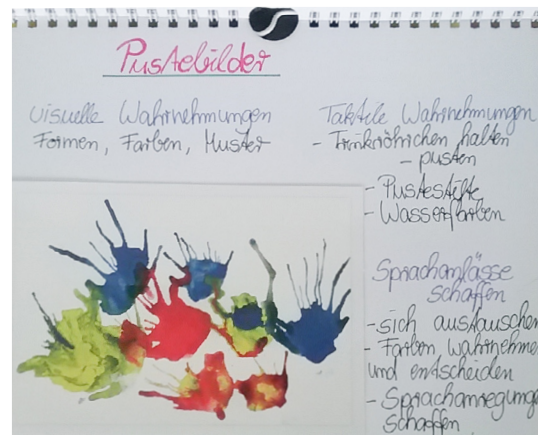 Pustebilder
visuelle Wahrnehmungen
Formen, Farben, Muster
Taktile Wahrnehmungen
- Trinkröhrchen halten
- pusten
- Pustestifte
- Wasserfarben
Sprachanlässe
schaffen
- sich austauschen
- Farben wahrnehme
und entscheiden
- Sprachanregung
schaffen